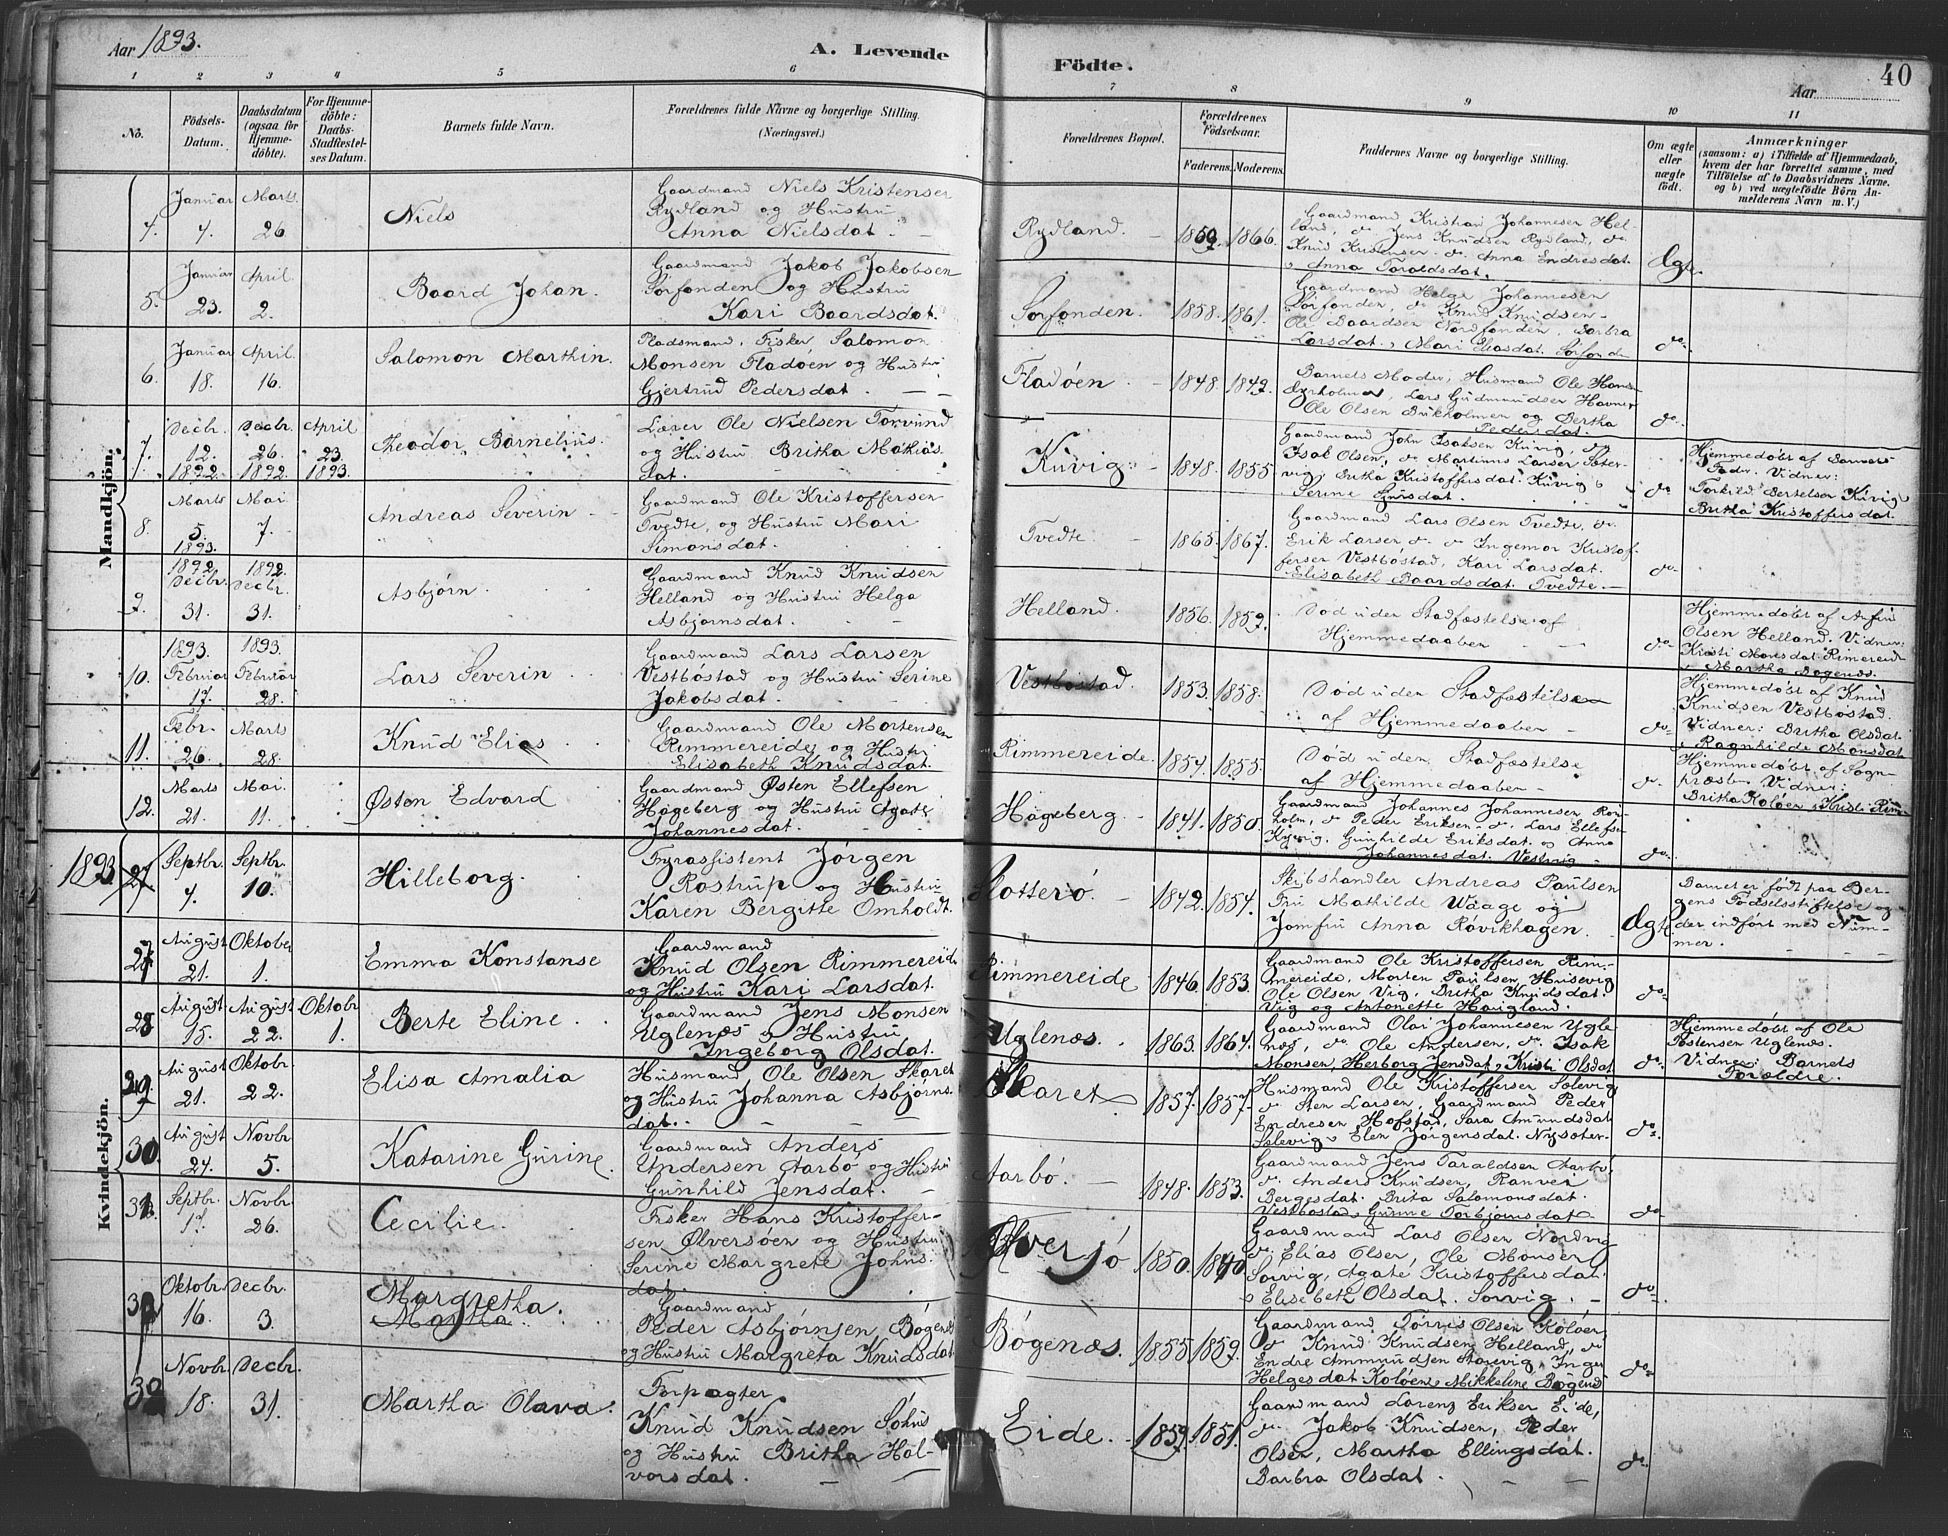 Aar 1893.
A. Levende
Födte.
Aar
40
1 2 3 4 5 6
7 8 9 10 11
No.
Födsels-
Datum.
Daabsdatum
(ogsaa for
Hjemme-
döbte).
For Hjemme-
döbte:
Daabs-
Stadfæstel-
ses Datum.
Barnets fulde Navn.
Forældrenes fulde Navne og borgerlige Stilling.
(Næringsvei.)
Forældrenes Bopæl.
Forældrenes
Födselsaar.
Faderens. Moderens.
Faddernes Navne og borgerlige Stilling.
Om ægte
eller
uægte
födt.
Anmærkninger
(saasom: a) i Tilfælde af Hjemmedaab,
hvem der har forrettet samme, med
Tilföielse af to Daabsvidners Navne.
og b) ved uægtefödte Börn An-
melderens Navn m. V.)
Mandkjön.
4. Januar 4. Marts 26
Niels
Gaardmand Niels Kristensen
Rydland og Hustru
Anna Nielsdat.
Rydland. 1859. 1866.
Gaardmand Kristian Johannesen Hel-
land, do Jens Knudsen Rydland, do
Knud Kristensen do Anna Endresdat.
Anna Taraldsdat.
Ægte.
5. Januar 23. April 2.
Baard Johan.
Gaardmand Jakob Jakobsen
Sørfonden og Hustru
Kari Baardsdat.
Sørfonden. 1858. 1861.
Gaardmand Helge Johannesen
Sørfonden, do Knud Knudsen
Ole Baardsen Nordfonden, Barbra
Larsdat, Mari Eliasdat. Sørfond.
do
6. Januar 18. April 16.
Salomon Marthin.
Pladsmand, Fisker Salomon
Monsen Fladøen og Hustru
Gjertrud Pedersdat
Fladøen. 1848. 1849.
Barnets Moder, Husmand Ole Hans.
Lars Gudmundsen Havner
Ole Olsen og Bertha
Pedersdat.
do
7. Decbr. 12. 1892 Decbr. 26. 1892 April 23. 1893.
Theodor Barnelius.
Læser Ole Nielsen Torvund
og Hustru Britha Mathias
dat.
Kuvig 1848. 1855
Gaardmand John Isaksen Kuvig, do
Isak Olsen, do Martinus Larsen Sæter-
vig, Britha Kristoffersdat. Kuvig
Serine
do
Hjemmedøbt af Barnets
Fader. Vidner:
Torkild Bertelsen Kuvig
Britha Kristoffersdat.
8. Marts 5. 1893. Mai 7.
Andreas Severin
Gaardmand Ole Kristoffersen
Tvedte, og Hustru Mari
Simonsdat.
Tvedte 1865. 1867.
Gaardmand Lars Olsen Tvedte, do
Erik Larsen do do Ingemor Kristof-
fersen Vestbøstad, Kari Larsdat.
Elisabeth Baardsdat Tvedte.
do
9. 1892 Decbr. 31. 1892. Decbr. 31.
Asbjørn
Gaardmand Knud Knudsen
Helland og Hustru Helga
Asbjørnsdat.
Helland. 1856. 1859.
Død uden Stadfæstelse af
Hjemmedaaben
do
Hjemmedøbt af Arfin
Olsen Helland. Vidner:
Kristi Monsdat Rimereid
Martha Bøgenæs.
10. 1893. Februar 17. 1893. Februar 28.
Lars Severin
Gaardmand Lars Larsen
Vestbøstad og Hustru Serine
Jakobsdat.
Vestbøstad. 1853. 1858.
Død uden Stadfæstelsen
af Hjemmedaaben
do
Hjemmedøbt af Knud
Knudsen Vestbøstad.
Vidner: Britha Olsdat
Ragnhilde Monsdat
11. Febr. 26. Marts 28.
Knud Elias
Gaardmand Ole Mortensen
Rimmereide og Hustru
Elisabeth Knudsdat.
Rimmereide. 1854. 1855.
Død uden Stadfæstelse
af Hjemmedaaben
do
Hjemmedøbt af Sogn-
præst. Vidner:
Britha Koløen, Kristi Rim
12. Marts 21. Mai 11.
Østen Edvard
Gaardmand Østen Ellefsen
Hageberg og Hustru Agate
Johannesdat.
Hageberg. 1841. 1850.
Gaardmand Johannes Johannesen
holm, do Peder Eriksen do, Lars Ellefsen
Gunhilde Eriksdat. og Anna
Johannesdat. Vestvig
do
Kvindekjön.
1893. 27 Septbr. 4. Septbr. 10.
Hilleborg.
Fyrassistent Jørgen
Rostrup og Hustru
Karen Bergitte Omholdt.
Slotterø. 1842. 1854.
Skibshandler Andreas Paulsen
Fru Mathilde Waage og
Jomfru Anna Røvikhagen.
Ægte
Barnet er født paa Ber-
gens Fødselsstiftelse og
der indført med Num-
mer.
August 21. Oktober 1.
Emma Konstanse
Gaardmand
Knud Olsen Rimmereide
og Hustru Kari Larsdat.
Rimmereide 1846. 1853.
Gaardmand Ole Kristoffersen Rim-
mereide, Morten Paulsen Husevig
Ole Olsen Vig, Britha Knudsdat.
Vig og Antonette Haugland.
do
28 August 15. August 22. Oktobr. 1.
Berte Eline
Gaardmand Jens Monsen
Uglenæs og Hustru
Ingeborg Olsdat.
Uglenæs. 1863. 1864.
Gaardmand Olai Johannesen Ugle
næs, do Ole Andersen, do Isak
Monsen, Herborg Jensdat, Kristi Olsdat
do
Hjemmedøbt af Ole
Uglenæs.
Vidner: Barnets
Forældre.
29 August 21. Oktobr. 22.
Elisa Amalia
Husmand Ole Olsen Skaret
og Hustru Johanna Asbjørns-
dat.
Skaret 1857. 1857.
Husmand Ole Kristoffersen Solevig
do Sten Larsen, Gaardmand Peder
Endresen Hofsjøs, Sara Amundsdat
Solevig, Elen Jørgensdat. Nysæter
do
30. August 24. Novbr. 5.
Katarine Gurine.
Gaardmand Anders
Andersen Aarbø og Hustru
Gunhild Jensdat.
Aarbø. 1848. 1853.
Gaardmand Jens Taraldsen Aarbø,
do Anders Knudsen, Ranvei
Bergesdat. Brita Salomonsdat.
Vestbøstad, Gurine Torbjørnsdat
do
31. Septbr. 17. Novbr. 26.
Cecilie.
Fisker Hans Kristoffer-
sen Ølversøen og Hustru
Serine Margrete Johns-
dat.
Ølversjø 1850. 1840
Gaardmand Lars Olsen Nordvig
do Elias Olsen, Ole Monsen
Sørvig, Agate Kristoffersdat.
Elisebeth Olsdat. Sørvig.
do
Oktobr. 16. Decbr. 3.
Margretha.
Martha
Gaardmand
Peder Asbjørnsen Bøgenæs
og Hustru Margreta Knudsdat
Bøgenæs. 1855 1859.
Gaardmand Tørris Olsen Koløen,
do Knud Knudsen Helland, do
Endre Ammundsen Inger
Helgesdat Koløen, Mikkeline Bøgenæs
do
Novbr. 18. Decbr. 31.
Martha Olava.
Forpagter
Knud Knudsen
og Hustru Britha Hal-
vorsdat.
Eide. 1859. 1851.
Gaardmand Lorens Eriksen Eide,
do Jakob Knudsen, Peder
Olsen, Martha Ellingsdat.
Barbra Olsdat.
do